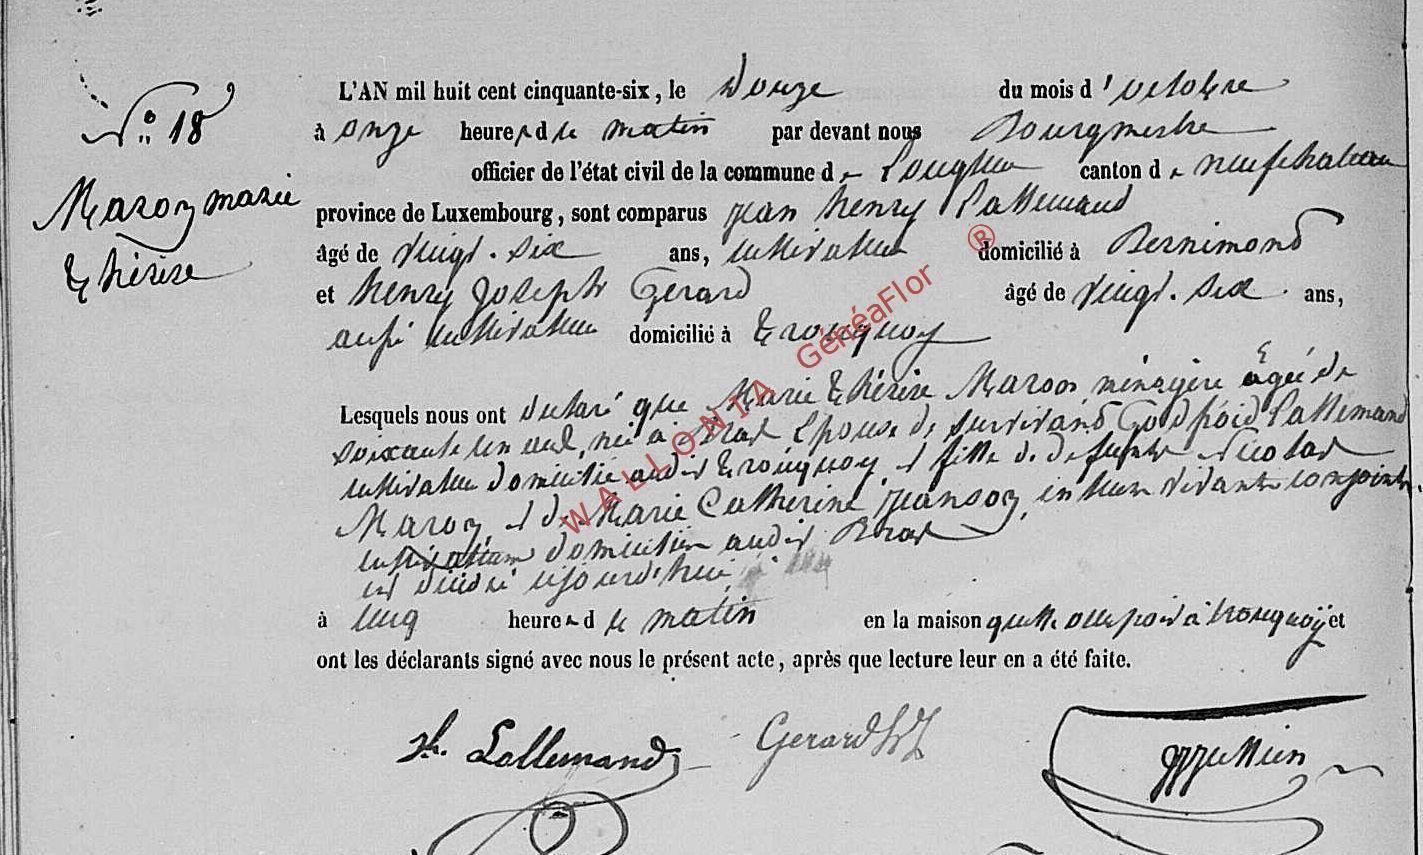 N° 18
Maron marie
thérèse
L'AN mil huit cent cinquante-six, le Douze du mois d'octobre
à onze heures du matin par devant nous Bourgmestre
officier de l'état civil de la commune de Longlier canton de neufchateau
province de Luxembourg, sont comparus jean henry Lallemand
âgé de vingt-six ans, cultivateur domicilié à Bernimond
et henry Joseph Gerard âgé de vingt-six ans,
aussi cultivateur domicilié à tronquoy
Lesquels nous ont déclaré que Marie thérèse Maron, ménagère âgée de
soixante un ans, née à épouse de survivant Lallemand
cultivateur domicilié audit tronquoy et fille de defunts Nicolas
Maron et de Marie Catherine jeanson, en leur vivant conjoints
domiciliés audit
est décédé aujourd'hui
à cinq heures du matin en la maison qu'elle occupoit à tronquoy et
ont les déclarants signé avec nous le présent acte, après que lecture leur en a été faite.
Jh. Lallemand Gerard hJ
WALLONIA GénéaFlor ®